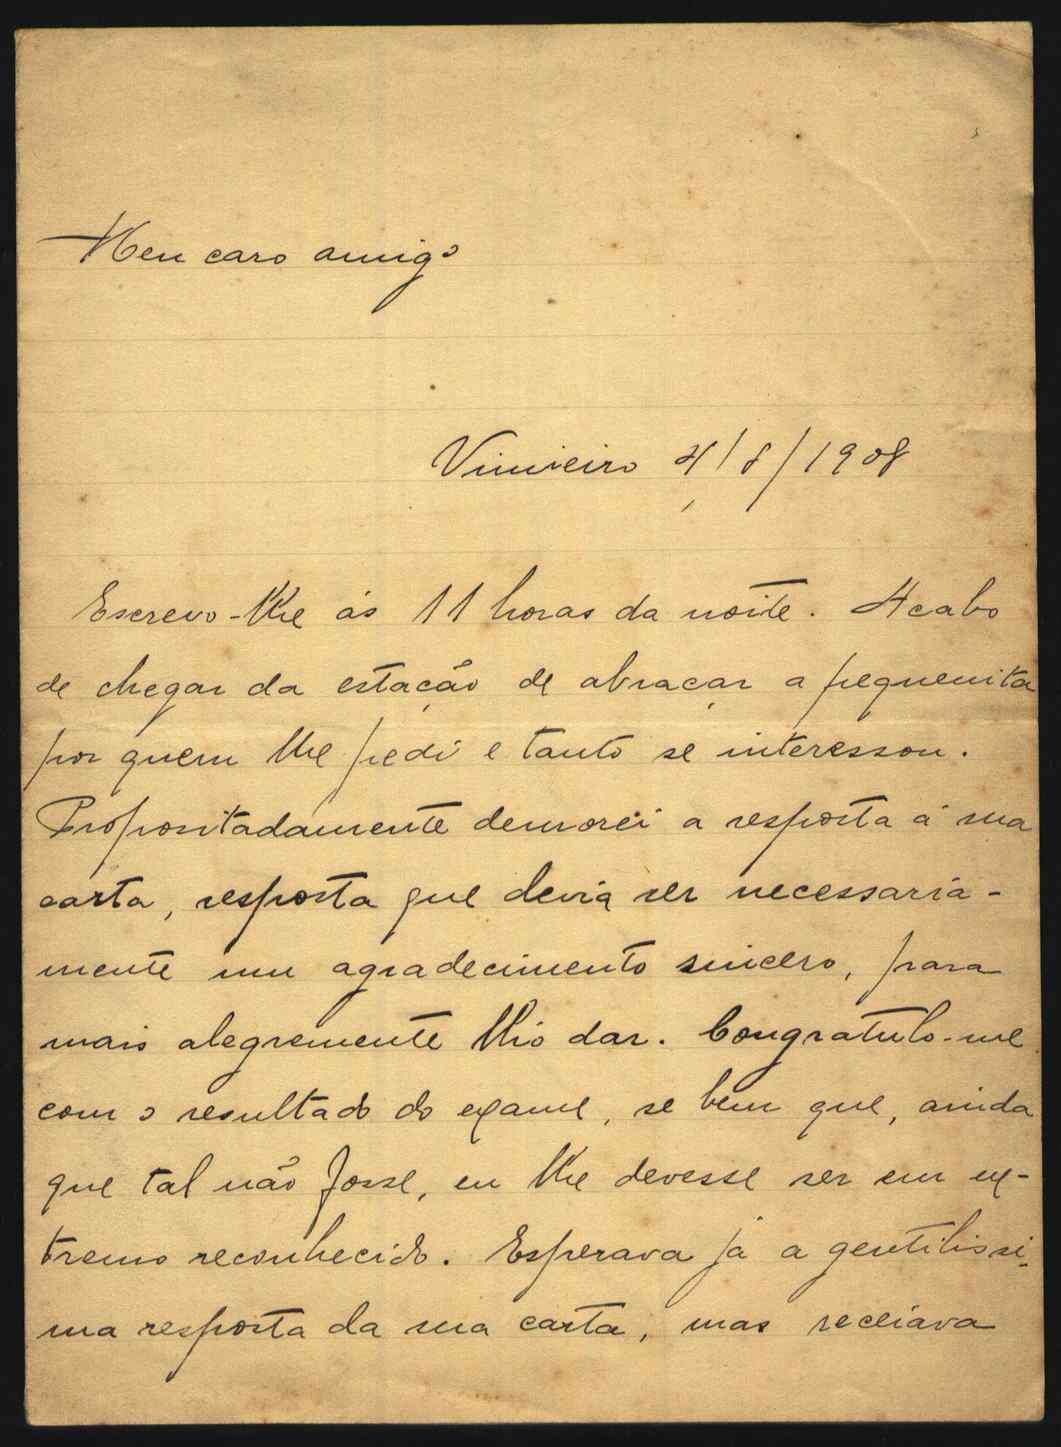 Meu caro amigo
Vimieiro 4/8/1908
Escrevo-lhe ás 11 horas da noite. Acabo
de chegar da estação de abraçar a pequenita
por quem lhe pedi e tanto se interessou.
Propositadamente demorei a resposta á sua
carta, resposta que devia ser necessaria-
mente um agradecimento sincero, para
mais alegremente lh'o dar. Congratulo-me
com o resultado do exame, se bem que, ainda
que tal não fosse, eu lhe devesse ser em ex-
tremo reconhecido. Esperava já a gentilissi-
ma resposta da sua carta, mas receiava